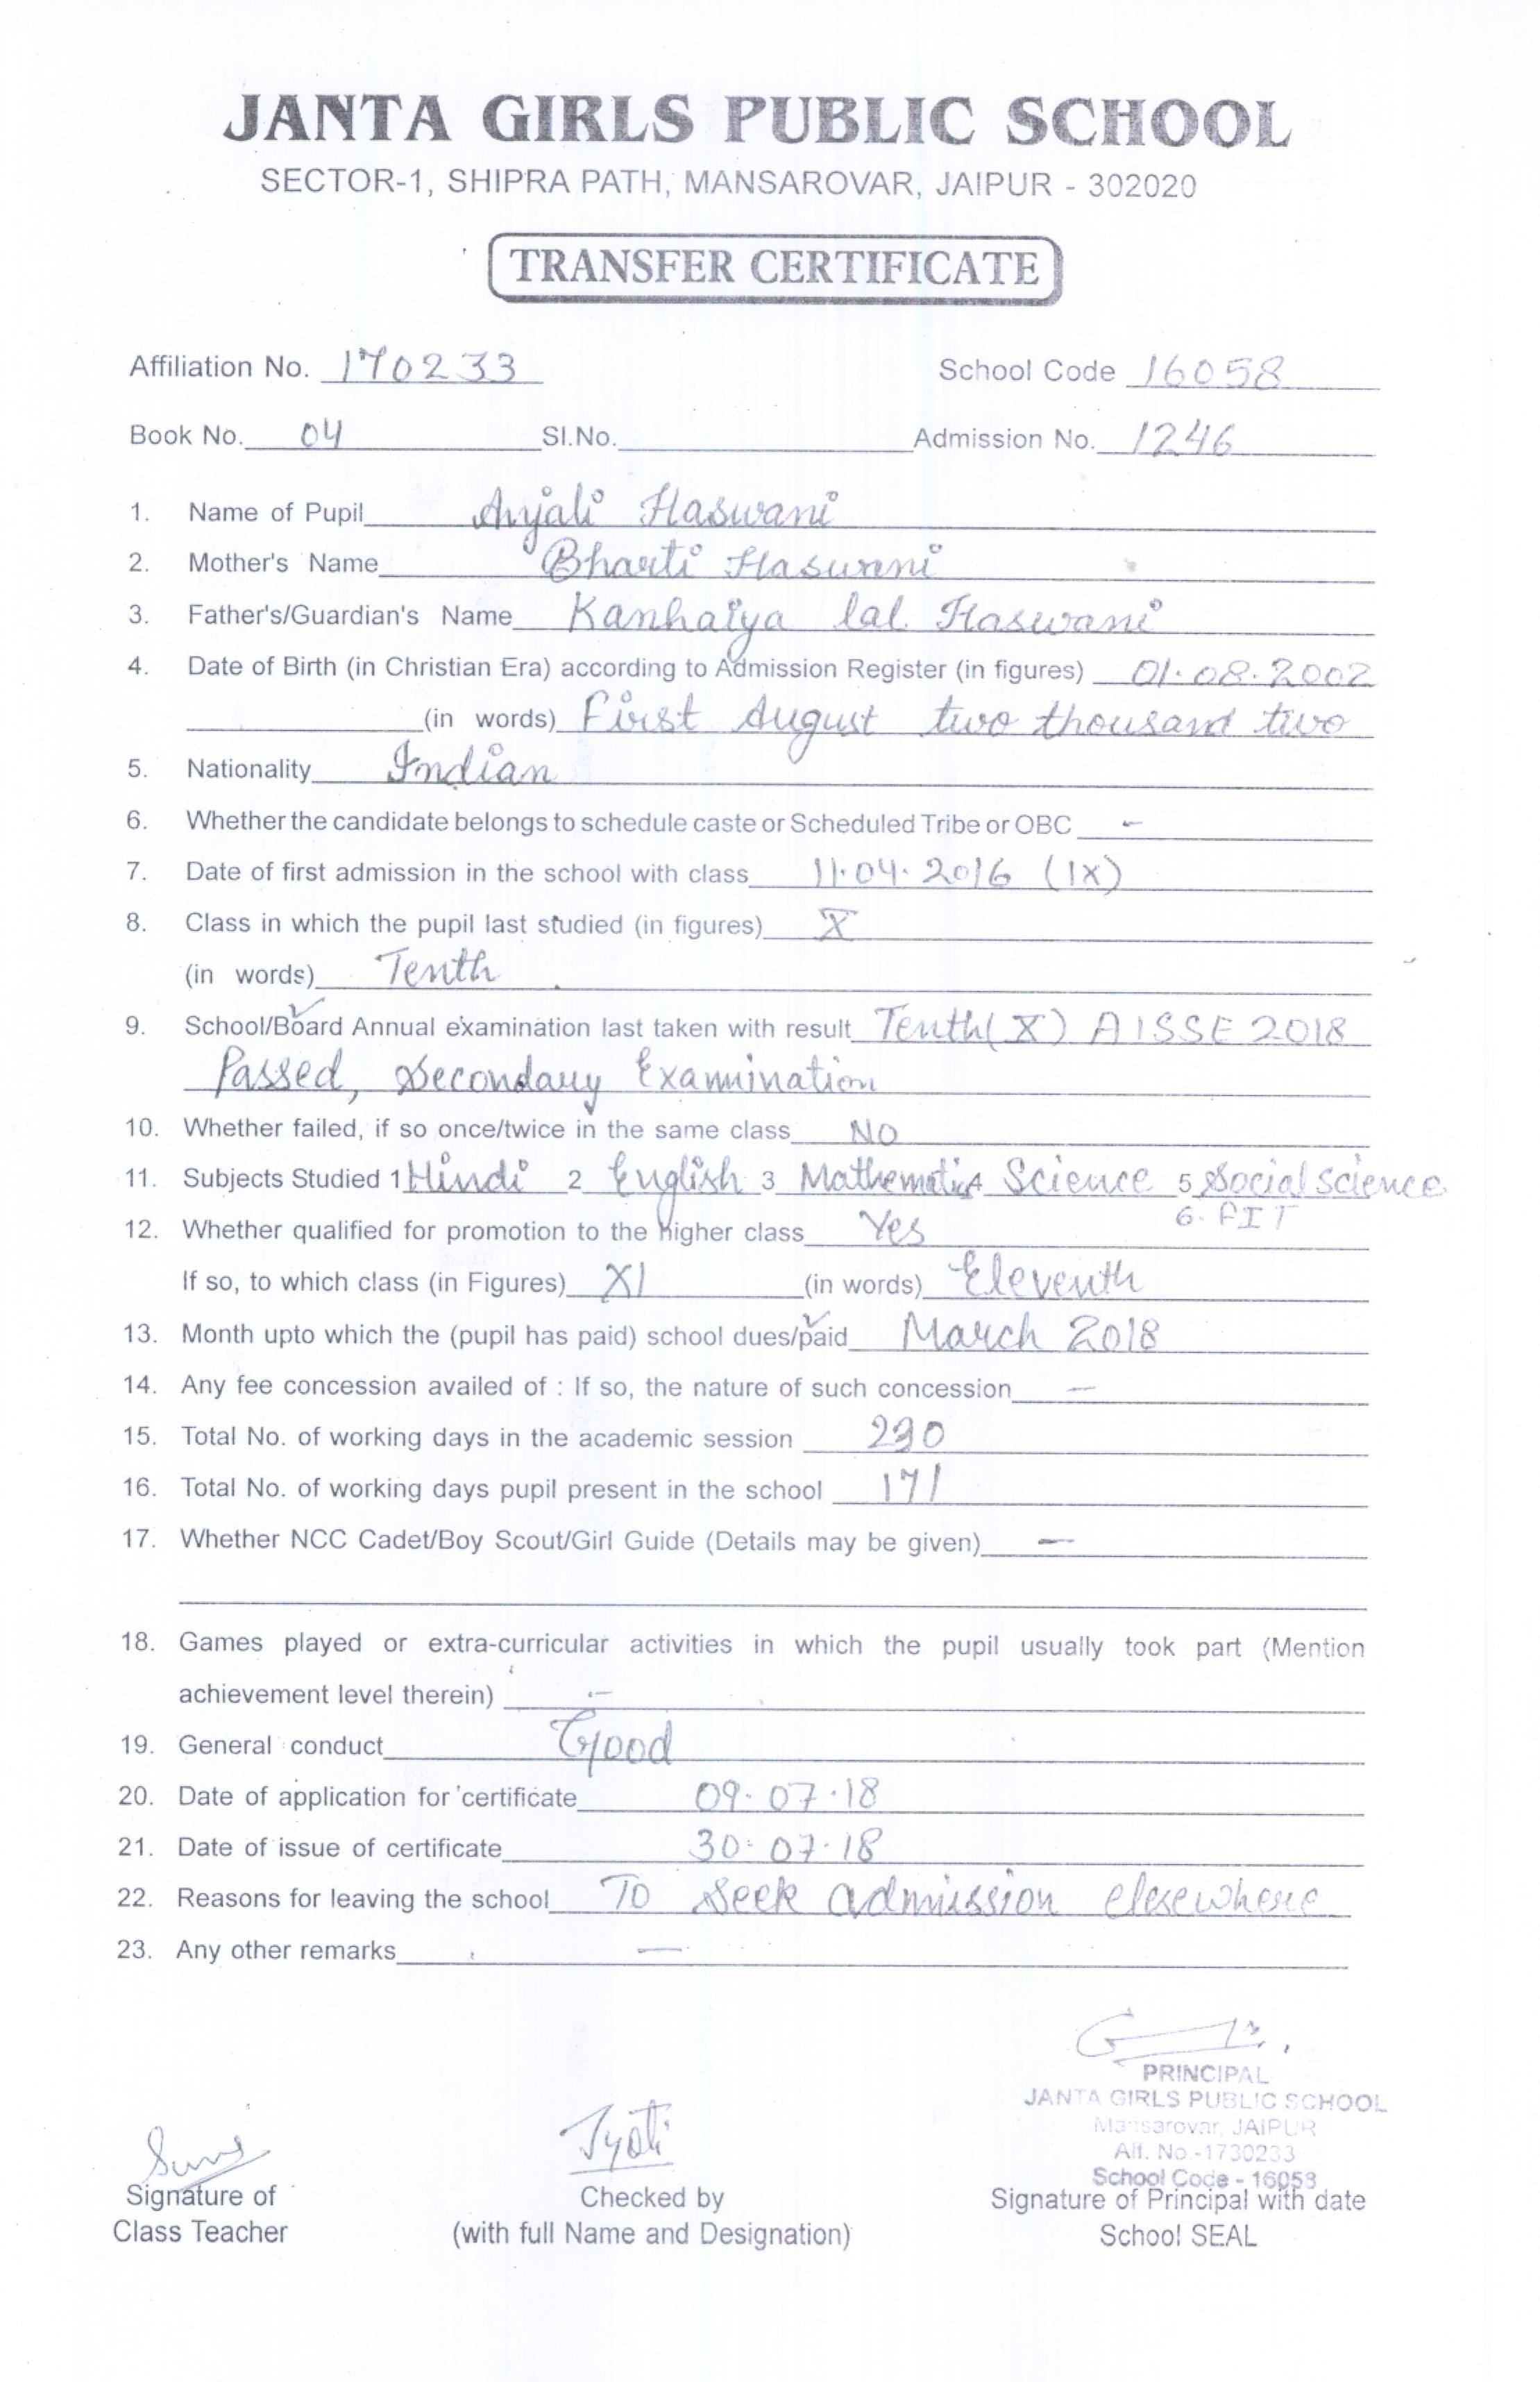 JANTA GIRLS PUBLIC SCHOOL
SECTOR-1, SHIPRA PATH, MANSAROVAR, JAIPUR - 302020
TRANSFER CERTIFICATE
Affiliation No. 170233 School Code 16058
Book No. 04 Sl.No. Admission No. 1246
1. Name of Pupil Anjali Haswani
2. Mother's Name Bharti Haswani
3. Father's/Guardian's Name Kanhaiya lal Haswani
4. Date of Birth (in Christian Era) according to Admission Register (in figures) 01.08.2002
(in words) First August two thousand two
5. Nationality Indian
6. Whether the candidate belongs to schedule caste or Scheduled Tribe or OBC -
7. Date of first admission in the school with class 11.04.2016 (IX)
8. Class in which the pupil last studied (in figures) X
(in words) Tenth
9. School/Board Annual examination last taken with result Tenth(X) AISSE 2018
Passed, Secondary Examination
10. Whether failed, if so once/twice in the same class NO
11. Subjects Studied 1 Hindi 2 English 3 Mathematics 4 Science 5 Social science
6. FIT
12. Whether qualified for promotion to the higher class Yes
If so, to which class (in Figures) XI (in words) Eleventh
13. Month upto which the (pupil has paid) school dues/paid March 2018
14. Any fee concession availed of : If so, the nature of such concession -
15. Total No. of working days in the academic session 230
16. Total No. of working days pupil present in the school 171
17. Whether NCC Cadet/Boy Scout/Girl Guide (Details may be given) -
18. Games played or extra-curricular activities in which the pupil usually took part (Mention
achievement level therein) -
19. General conduct Good
20. Date of application for certificate 09.07.18
21. Date of issue of certificate 30.07.18
22. Reasons for leaving the school To Seek admission elsewhere
23. Any other remarks -
PRINCIPAL
JANTA GIRLS PUBLIC SCHOOL
Mansarovar, JAIPUR
Alf. No.-1730233
School Code - 16058
Jyoti
Signature of Class Teacher
Checked by
(with full Name and Designation)
Signature of Principal with date
School SEAL